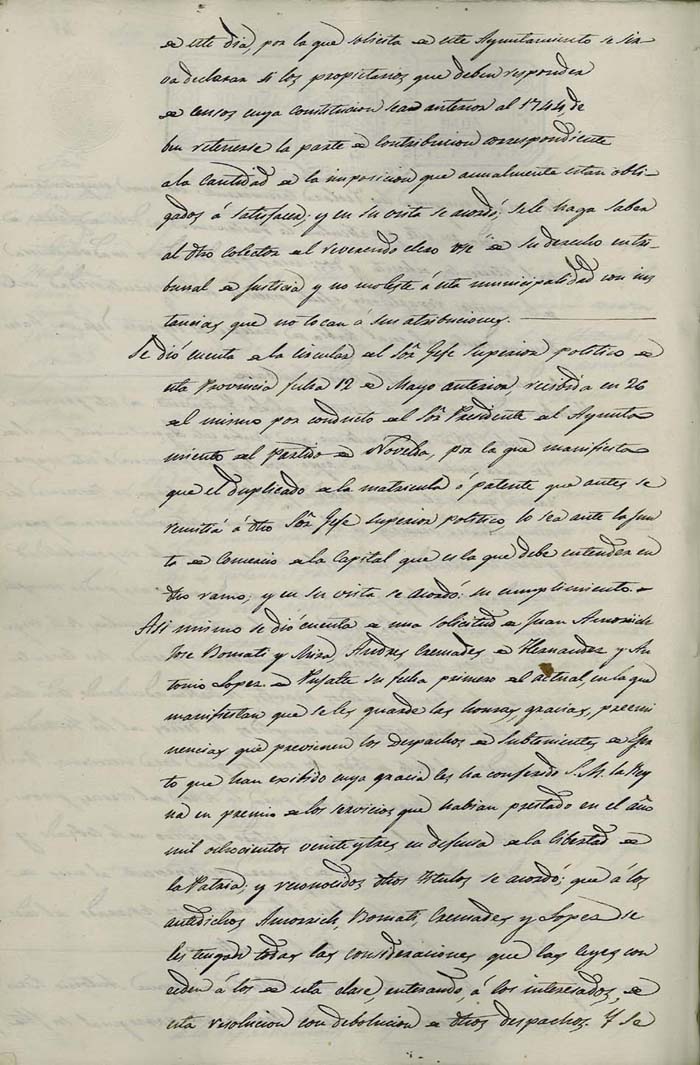 de este dia, por la que solicita de este Ayuntamiento se sir-
va declarar si los propietarios que deben responder
de censos cuya constitucion sea anterior al 1744, de
ben retenerse la parte de contribucion correspondiente
a la cantidad de la imposicion que anualmente estan obli-
gados á satisfacer; y en su vista se acordó; se le haga saber
al dho colector del reverendo clero use de su derecho en tri-
bunal de Justicia y no moleste á esta municipalidad con ins
tancias que no tocan á sus atribuciones.
Se dió cuenta de la circular del Sor. Gefe Superior politico de
esta Provincia fecha 12 de Mayo anterior, recibida en 26
del mismo por conducto del Sor. Presidente del Ayunta
miento del Partido de Novelda, por la que manifiesta
que el duplicado de la matricula ó patente que antes se
remitia á dho Sor. Gefe Superior politico, lo sea ante la Jun
ta de Comercio de la Capital que es la que debe entender en
dho ramo; y en su vista se acordó: su cumplimiento.
Asi mismo se dió cuenta de una solicitud de Juan
Jose Bomati y Mira, Andres Cremades de Hernandez y An
tonio Lopez de su fecha primero del actual, en la que
manifiestan que se les guarde las honras, gracias, preemi
nencias que previenen los despachos de Subtenientes de Eger
to que han exibido cuya gracia les ha conferido S. M. la Rey
na en premio de los servicios que habian prestado en el año
mil ochocientos veinte y tres en defensa de la libertad de
la Patria; y reconocidos dhos titulos se acordó; que á los
antedichos Bomati, Cremades y Lopez se
les tengan todas las consideraciones que las leyes con
ceden á los de esta clase, enterando á los interesados, de
esta resolucion con debolucion de dhos despachos. Y se